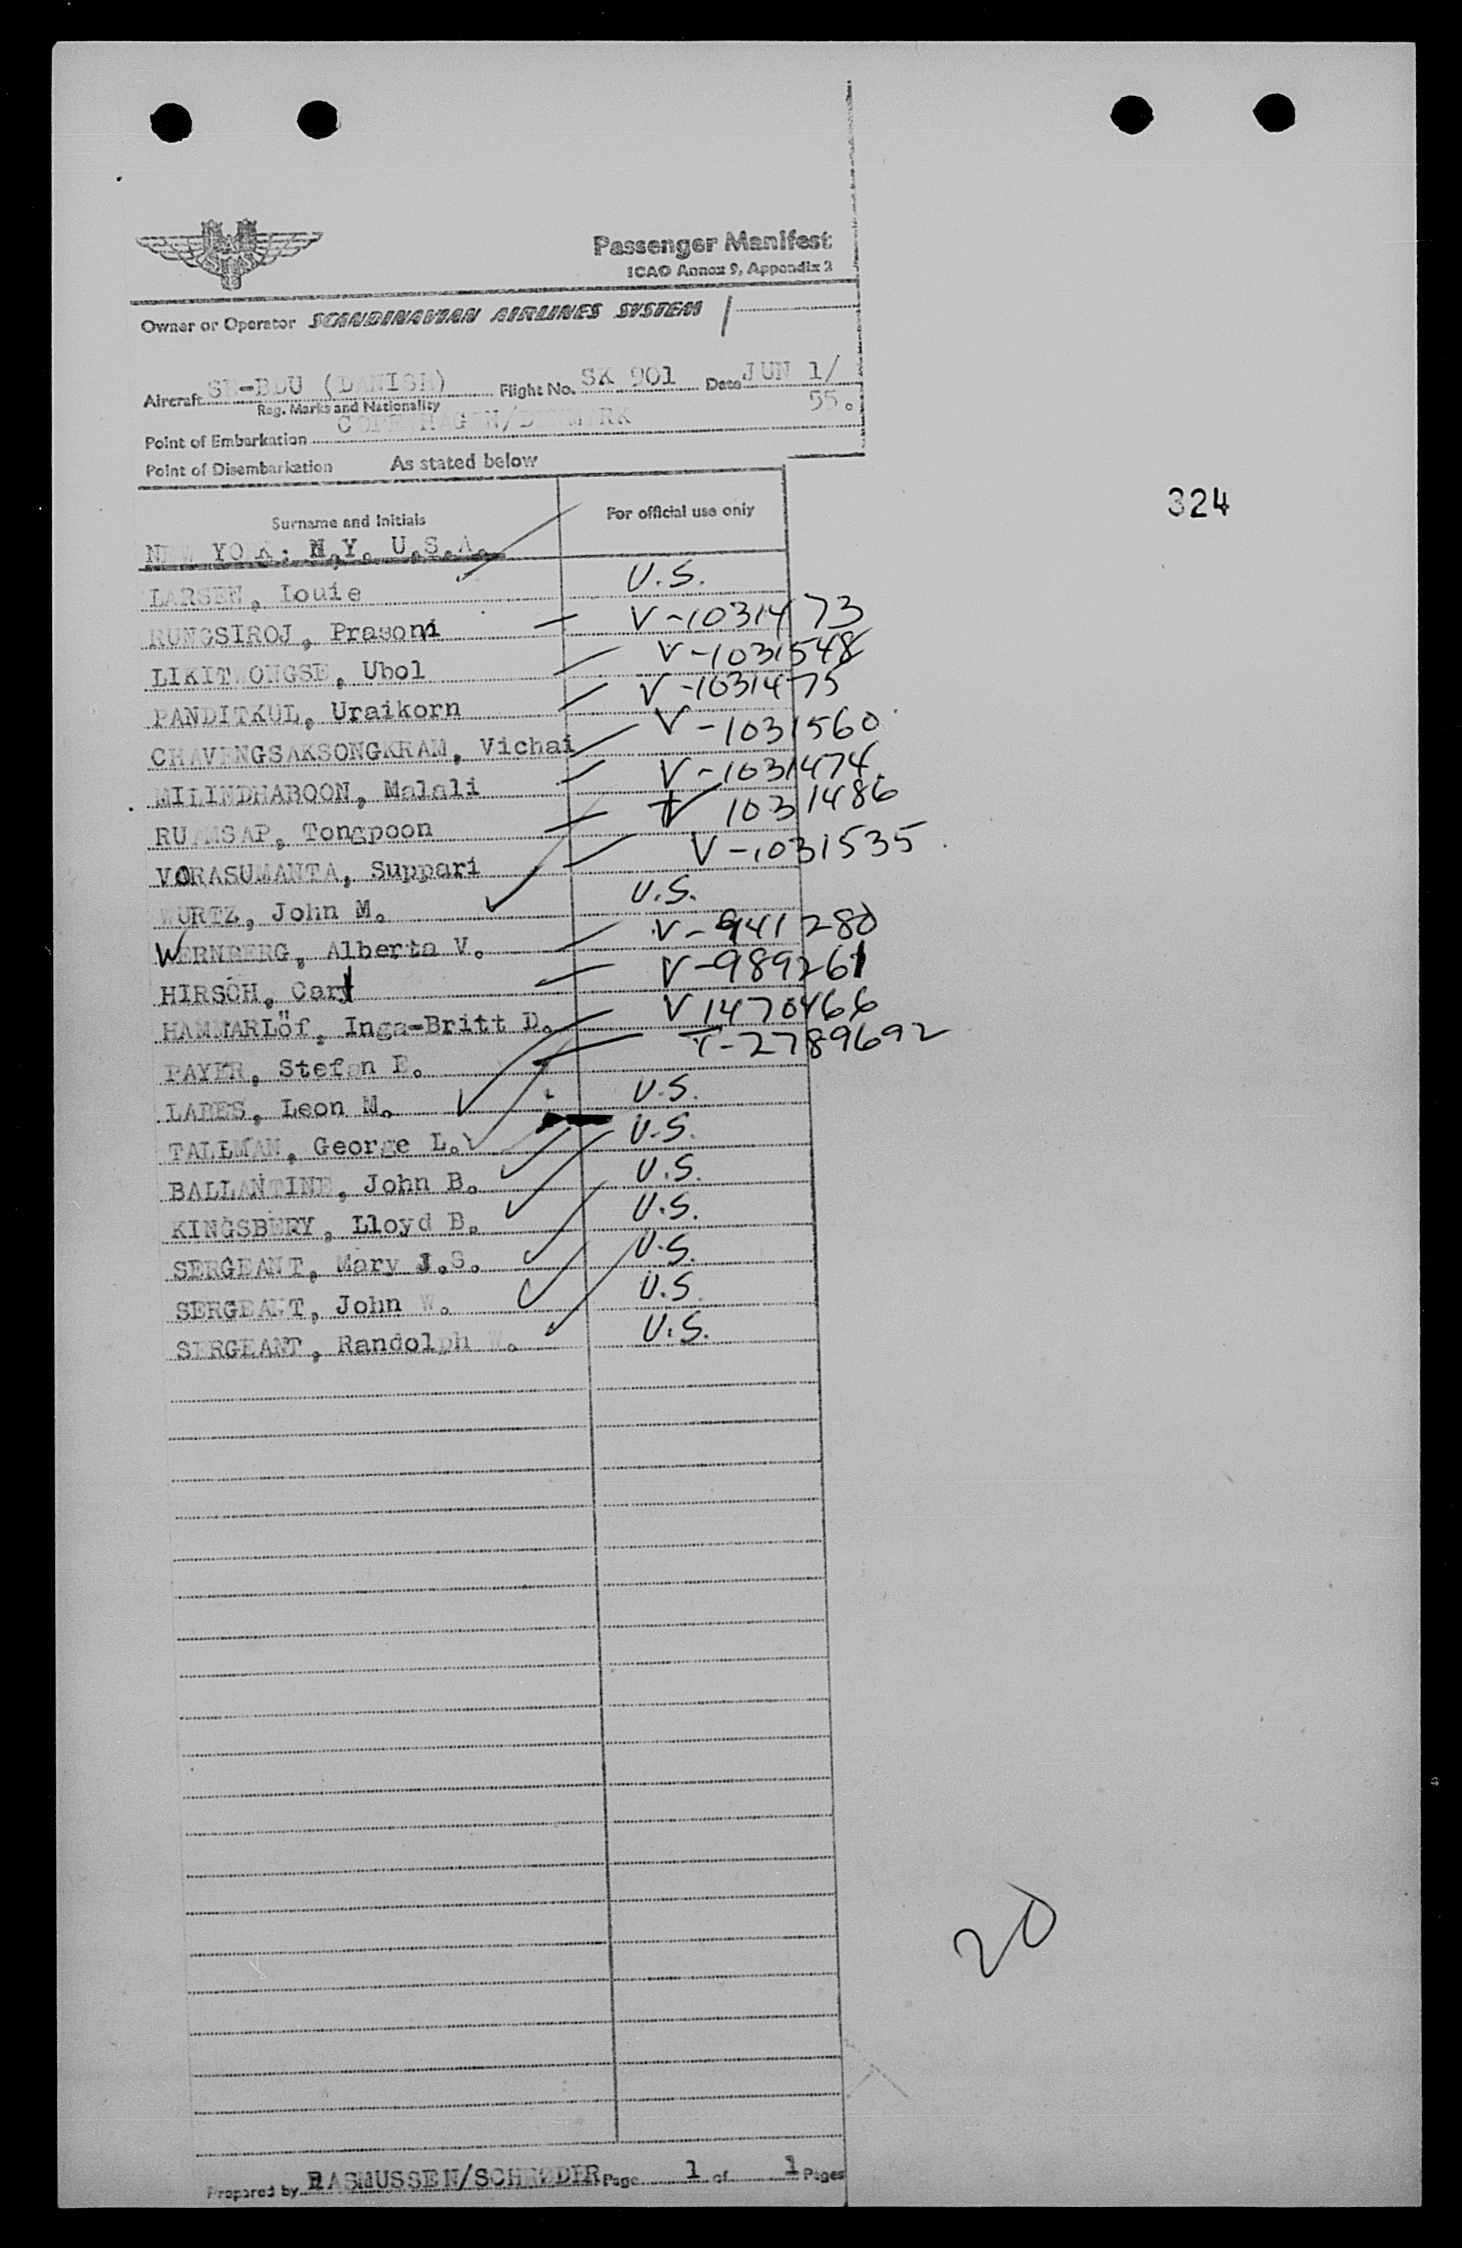 Passenger Manifest
ICAO Annex 9, Appendix 2
Owner or Operator SCANDINAVIAN AIRLINES SYSTEM
Aircraft SE-BDU (DANISH) Flight No. SK 901 Date JUN 1/
Reg. Marks and Nationality 55.
Point of Embarkation COPENHAGEN/DENMARK
Point of Disembarkation As stated below
324
Surname and Initials For official use only
NEW YORK: N.Y. U.S.A.
LARSEN, Louie U.S.
RUNGSIROJ, Prasoni V-1031473
LIKITWONGSE, Ubol V-1031548
PANDITKUL, Uraikorn V-1031475
CHAVENGSAKSONGKRAM, Vichai V-1031560
MILINDHABOON, Malali V-1031474
RUAMSAP, Tongpoon V 1031486
VORASUMANTA, Suppari V-1031535
WURTZ, John M. U.S.
WERNBERG, Alberta V. V-941280
HIRSCH, Carl V-989261
HAMMARLöf, Inga-Britt D. V 1470466
PAYER, Stefan E. T-2789692
LABES, Leon M. U.S.
TALLMAN, George L. U.S.
BALLANTINE, John B. U.S.
KINGSBERY, Lloyd B. U.S.
SERGEANT, Mary J.S. U.S.
SERGEANT, John W. U.S
SERGEANT, Randolph W. U.S.
20
Prepared by RASMUSSEN/SCHRØDER Page 1 of 1 Pages